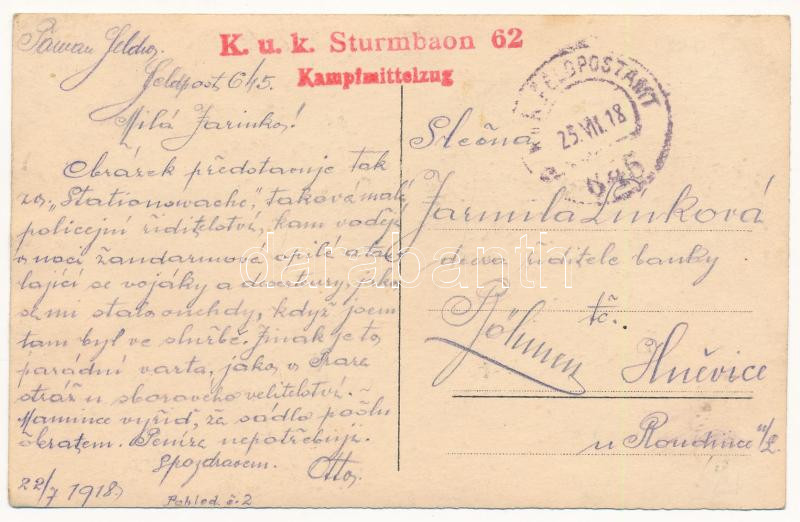 K. u. k. Sturmbaon 62
Kampfmittelzug
K.u.K. FELDPOSTAMT
25.VII.18
645
Feldpost 645.
Milá Jarinko!
Obrázek představuje tak
zv. „Stationswache", taková malé
policejní ředitelství, kam vodějí
v noci žandarmové opilé a tou-
lající se vojáky a dserteury, jako
se mi stalo onehdy, když jsem
tam byl ve službě. Jinak je to
parádní varta, jako v Praze
stráž u sborového velitelství. -
Mamince vyřiď, že sádlo pošlu
obratem. Peníze nepotřebuji.
S pozdravem. Otto.
22/7 1918
Pohled. č. 2
Slečna
Jarmila Zinková
dcera ředitele banky
tč.
Böhmen
Hněvice
u Roudnice n/L.
darabanth